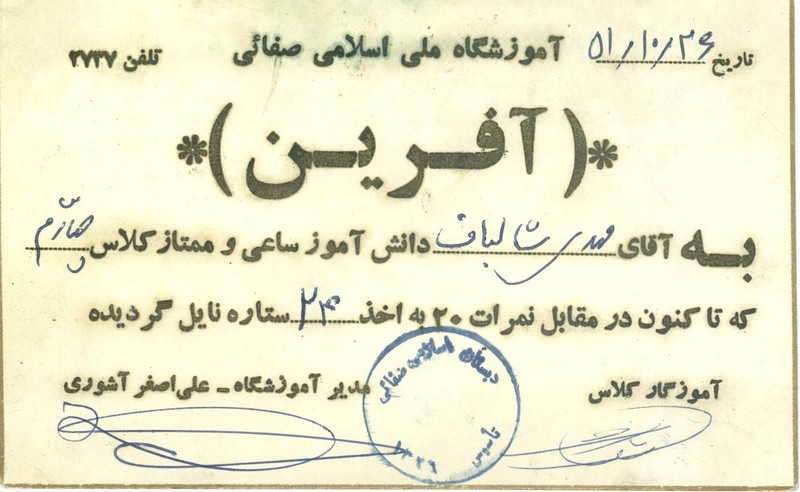 تاریخ ۵۱/۱۰/۲۶ آموزشگاه ملی اسلامی صفائی تلفن ۲۷۳۷
*( آفرین )*
به آقای مهدی شالباف دانش آموز ساعی و ممتاز کلاس
که تا کنون در مقابل نمرات ۲۰ به اخذ ۲۴ ستاره نایل گردیده
آموزگار کلاس مدیر آموزشگاه ـ علی‌اصغر آشوری
دبستان اسلامی صفائی
تأسیس ۱۳۲۶